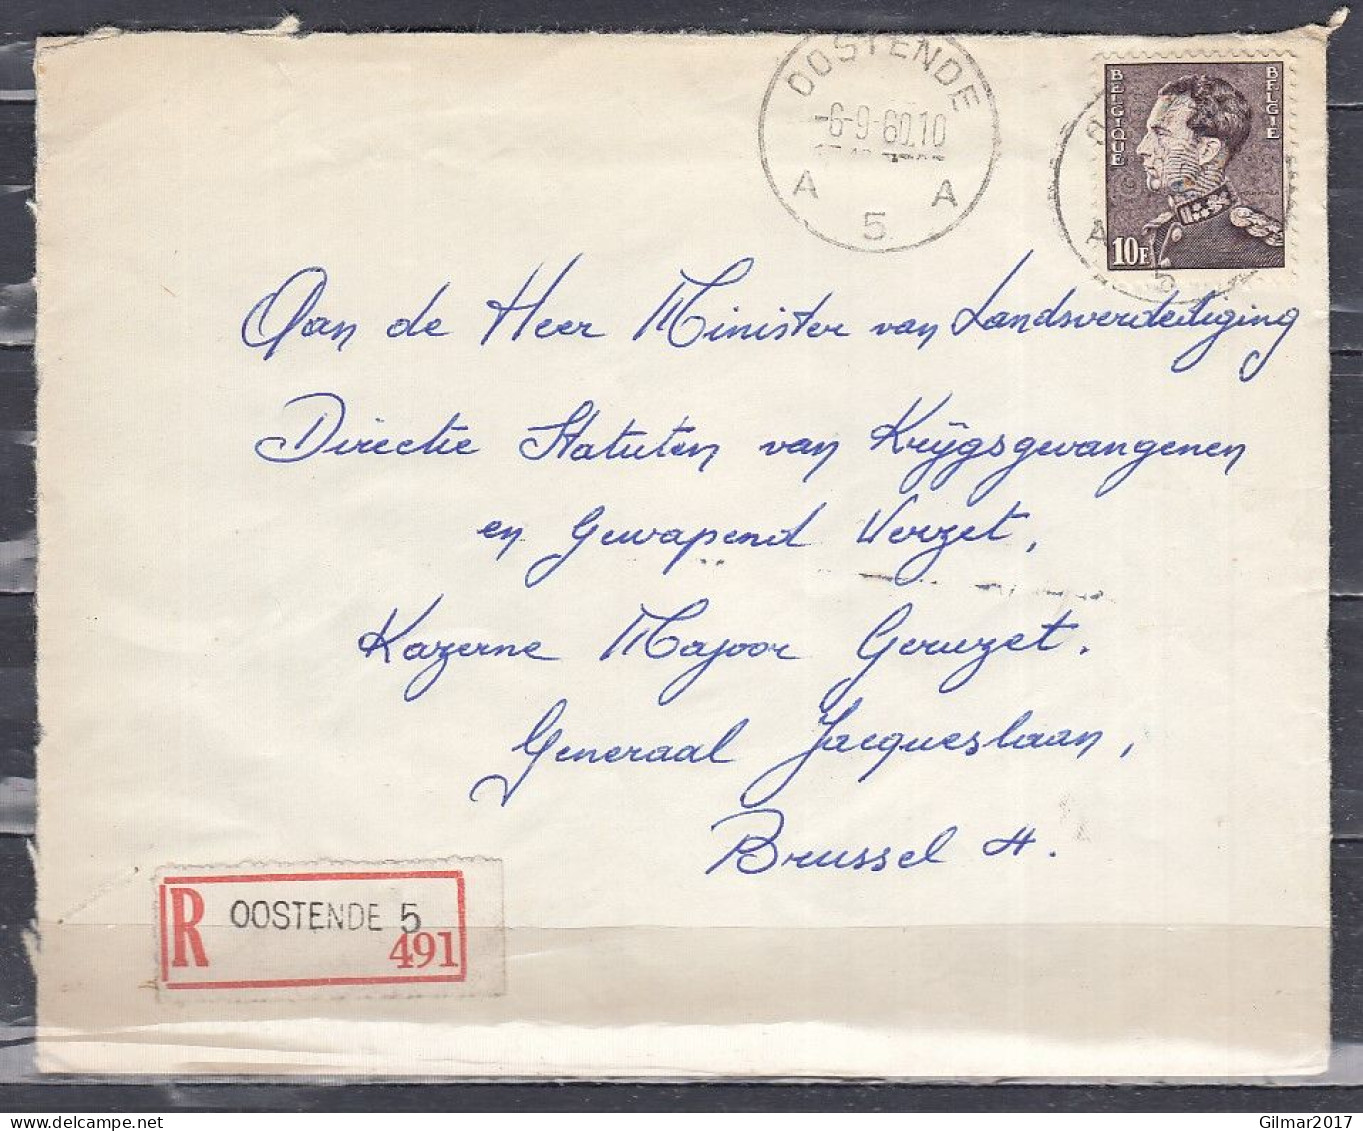 OOSTENDE
-6-9-60.10
A A
5
BELGIQUE
BELGIE
10F
A
Aan de Heer Minister van Landsverdediging
Directie Statuten van Krijgsgevangenen
en Gewapend Verzet,
Kazerne Majoor Geruzet.
Generaal Jacqueslaan,
Brussel 4.
R OOSTENDE 5
491
Gilmar2017